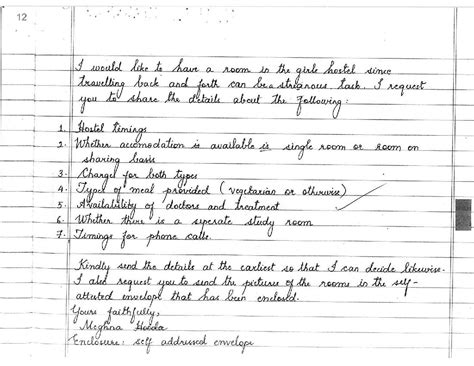 12
I would like to have a room in the girls hostel since
travelling back and forth can be a strenous task. I request
you to share the details about the following:
1. Hostel timings
2. Whether accomodation is available is single room or room on
sharing basis
3. Charges for both types
4. Types of meal provided (vegetarian or otherwise)
5. Availability of doctors and treatment
6. Whether there is a seperate study room
7. Timings for phone calls.
Kindly send the details at the earliest so that I can decide likewise.
I also request you to send the pictures of the rooms in the self-
attested envelope that has been enclosed.
Yours faithfully,
Meghna Hooda
Enclosure: self addressed envelope